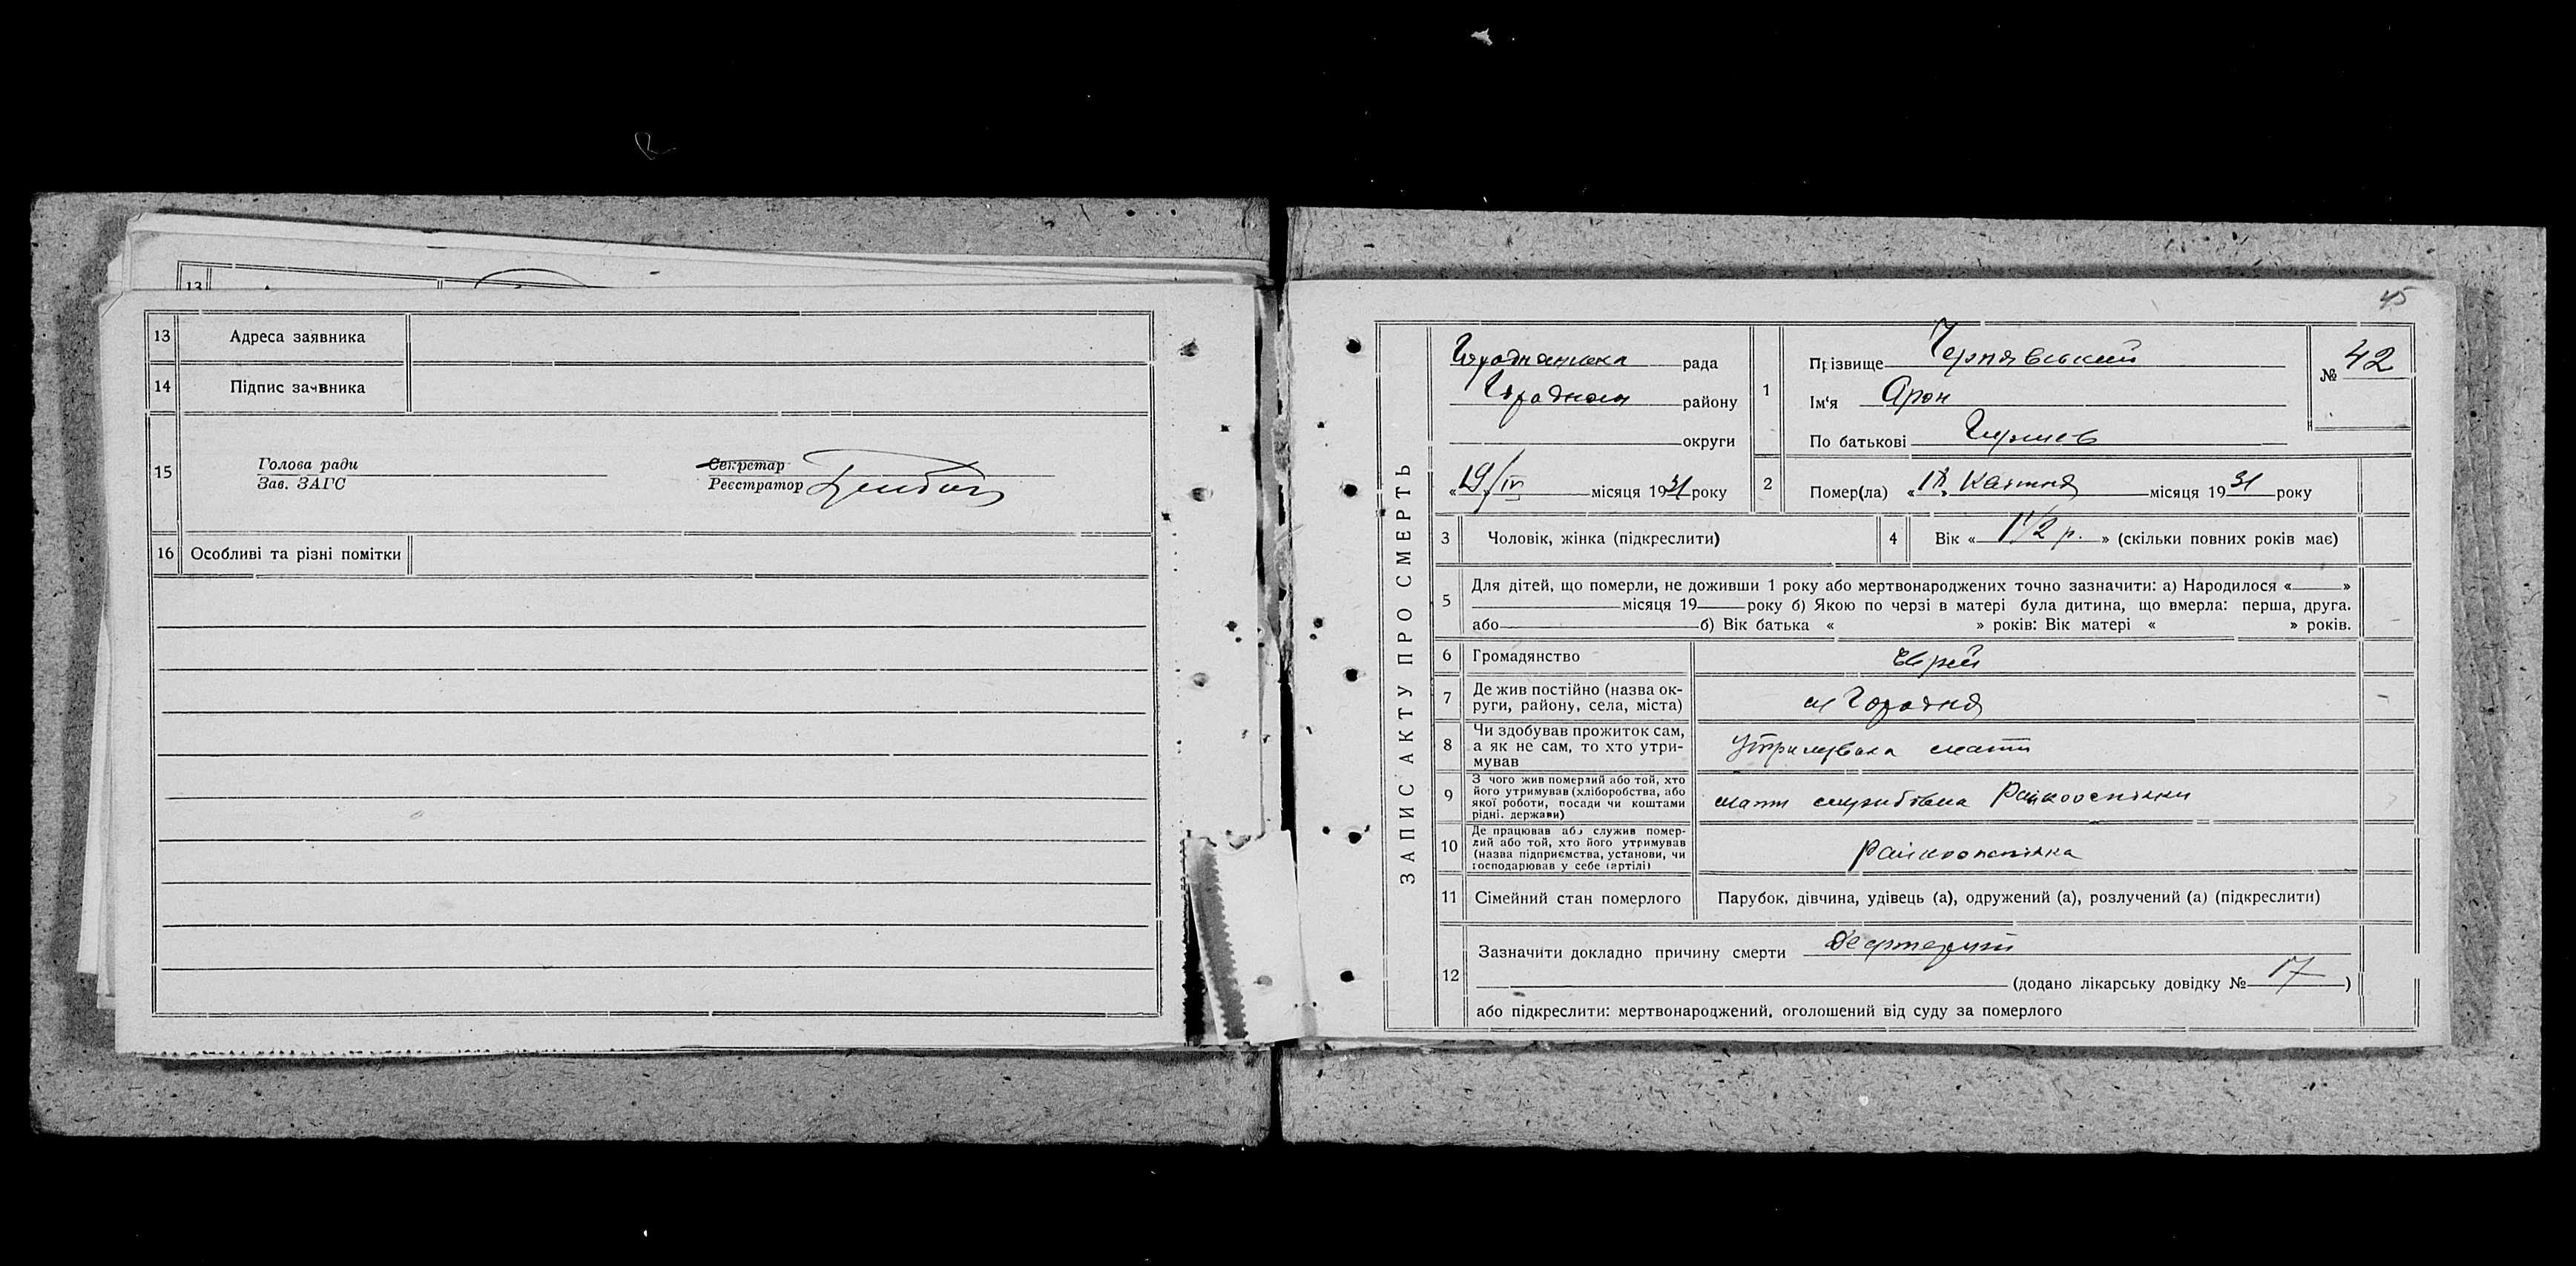 13
13 Адреса заявника
14 Підпис заявника
15 Голова ради
Зав. ЗАГС
Секретар
Реєстратор
16 Особливі та різні помітки
45
ЗАПИС АКТУ ПРО СМЕРТЬ
Городнянська рада
Городнян району
округи
« 19/IV місяця 1931 року
1 Прізвище Чернявський
Ім'я Арон
По батькові Гиршев
№ 42
2 Помер(ла) «18» Квітня місяця 1931 року
3 Чоловік, жінка (підкреслити)
4 Вік « 1 1/2 р. » (скільки повних років має)
5 Для дітей, що померли, не доживши 1 року або мертвонароджених точно зазначити: а) Народилося « »
місяця 19 року б) Якою по черзі в матері була дитина, що вмерла: перша, друга.
або б) Вік батька « » років: Вік матері « » років.
6 Громадянство Єврей
7 Де жив постійно (назва ок-
руги, району, села, міста)
м Городня
8 Чи здобував прожиток сам,
а як не сам, то хто утри-
мував
Утримувала мати
9 З чого жив померлий або той, хто
його утримував (хліборобства, або
якої роботи, посади чи коштами
рідні. держави)
мати службовка Райкооспілки
10 Де працював або служив помер-
лий або той, хто його утримував
(назва підприємства, установи, чи
господарював у себе (артілі)
Райкоопспілка
11 Сімейний стан померлого Парубок, дівчина, удівець (а), одружений (а), розлучений (а) (підкреслити)
12 Зазначити докладно причину смерти Дефтерит
(додано лікарську довідку № 17 )
або підкреслити: мертвонароджений, оголошений від суду за померлого